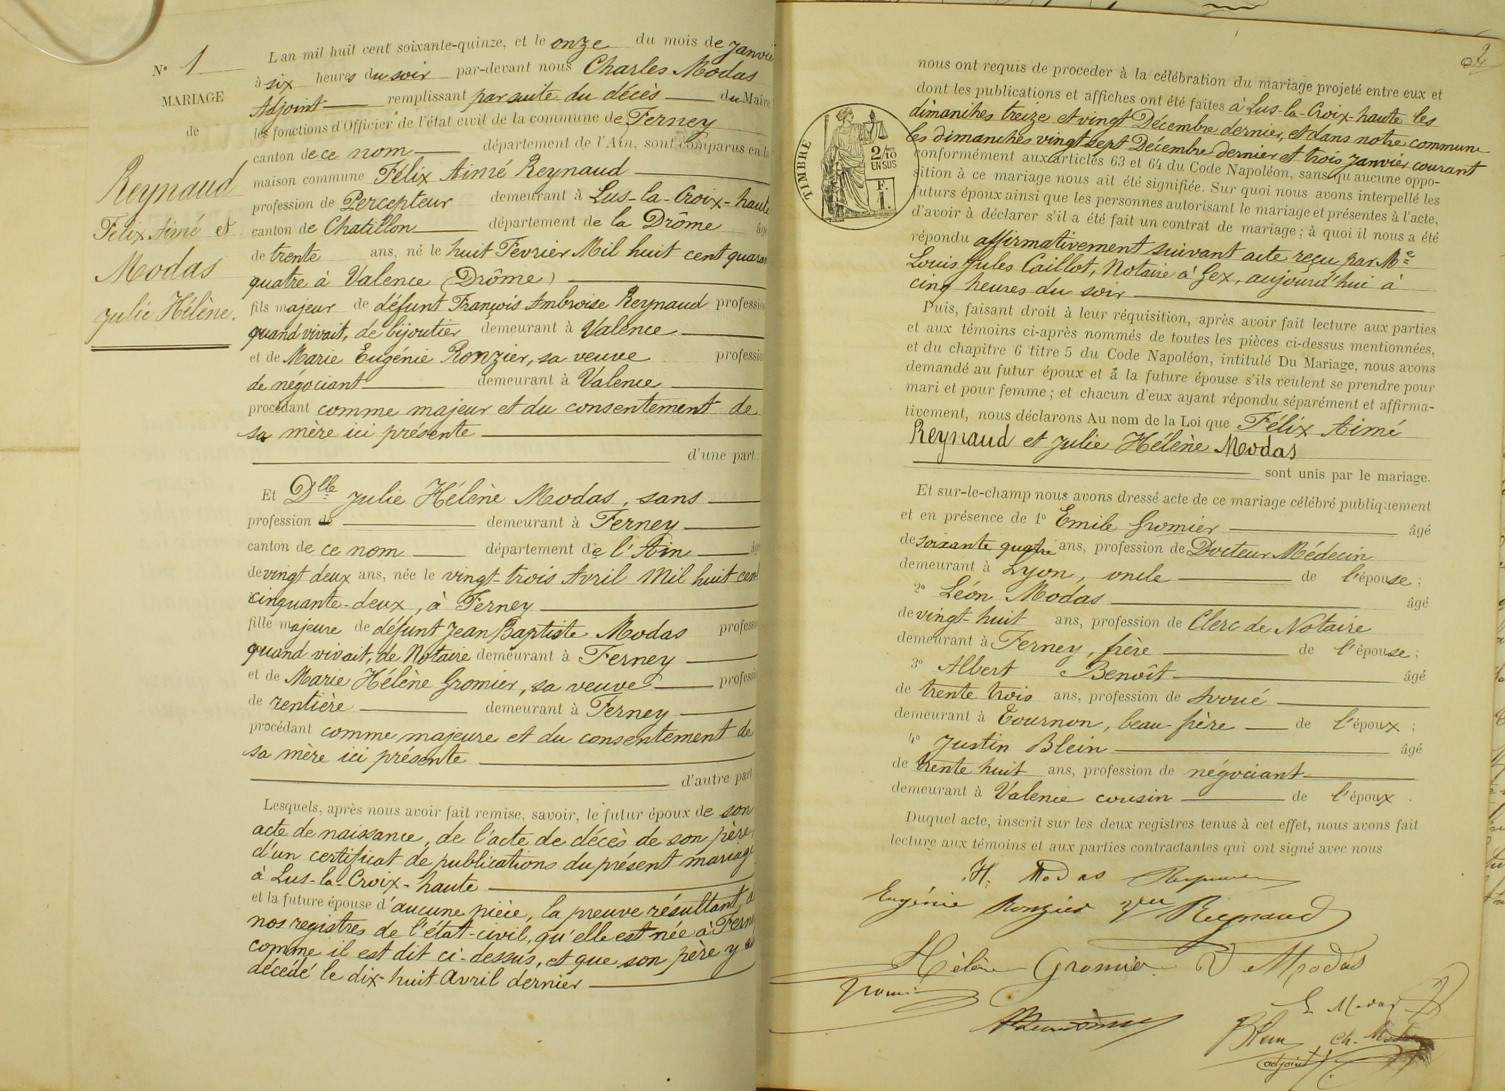 N° 1
MARIAGE
de
Reynaud
Félix Aimé et
Modas
Julie Hélène.
L'an mil huit cent soixante-quinze, et le onze du mois de Janvier
à six heures du soir par-devant nous Charles Modas
Adjoint remplissant par suite du décès du Maire
les fonctions d'Officier de l'état civil de la commune de Ferney
canton de ce nom département de l'Ain, sont comparus en la
maison commune Félix Aimé Reynaud
profession de Percepteur demeurant à Lus-la-Croix-haute
canton de Chatillon département de la Drôme âgé
de trente ans, né le huit Fevrier Mil huit cent quaran
quatre à Valence (Drôme)
fils majeur de défunt François Ambroise Reynaud profession
quand vivait, de bijoutier demeurant à Valence
et de Marie Eugénie Ronzier, sa veuve profession
de négociant demeurant à Valence
procédant comme majeur et du consentement de
sa mère ici présente
d'une part;
Et Dlle Julie Hélène Modas, sans
profession de demeurant à Ferney
canton de ce nom département de l'Ain âgé
de vingt deux ans, née le vingt-trois Avril Mil huit cent
cinquante-deux, à Ferney
fille majeure de défunt Jean Baptiste Modas profession
quand vivait, de Notaire demeurant à Ferney
et de Marie Hélène Gromier, sa veuve profession
de rentière demeurant à Ferney
procédant comme majeure et du consentement de
sa mère ici présente
d'autre part
Lesquels, après nous avoir fait remise, savoir, le futur époux de son
acte de naissance, de l'acte de décès de son père,
d'un certificat de publications du présent mariage
à Lus-la-Croix-haute
et la future épouse d'aucune pièce, la preuve résultant de
nos registres de l'état-civil, qu'elle est née à Ferney
comme il est dit ci-dessus, et que son père y est
décédé le dix-huit Avril dernier
2
TIMBRE
2/10
EN SUS
F.
1.
nous ont requis de proceder à la célébration du mariage projeté entre eux et
dont les publications et affiches ont été faites à Lus-la-Croix-haute les
dimanches treize et vingt Décembre dernier, et dans notre commune
les dimanches vingt sept Décembre dernier et trois Janvier courant
conformément aux articles 63 et 64 du Code Napoléon, sans qu'aucune oppo-
sition à ce mariage nous ait été signifiée. Sur quoi nous avons interpellé les
futurs époux ainsi que les personnes autorisant le mariage et présentes à l'acte,
d'avoir à déclarer s'il a été fait un contrat de mariage; à quoi il nous a été
répondu affirmativement suivant acte reçu par Me
Louis Jules Caillot, Notaire à Gex, aujourd'hui à
cinq heures du soir
Puis, faisant droit à leur réquisition, après avoir fait lecture aux parties
et aux témoins ci-après nommés de toutes les pièces ci-dessus mentionnées,
et du chapitre 6 titre 5 du Code Napoléon, intitulé Du Mariage, nous avons
demandé au futur époux et à la future épouse s'ils veulent se prendre pour
mari et pour femme; et chacun d'eux ayant répondu séparément et affirma-
tivement, nous déclarons Au nom de la Loi que Félix Aimé
Reynaud et Julie Hélène Modas
sont unis par le mariage.
Et sur-le-champ nous avons dressé acte de ce mariage célébré publiquement
et en présence de 1° Emile Gromier âgé
de soixante quatre ans, profession de Docteur Médecin
demeurant à Lyon, oncle de l'épouse;
2° Léon Modas âgé
de vingt-huit ans, profession de Clerc de Notaire
demeurant à Ferney, frère de l'épouse;
3° Albert Benoît âgé
de trente trois ans, profession de Avoué
demeurant à Tournon, beau-frère de l'époux;
4° Justin Blein âgé
de trente huit ans, profession de négociant
demeurant à Valence cousin de l'époux.
Duquel acte, inscrit sur les deux registres tenus à cet effet, nous avons fait
lecture aux témoins et aux parties contractantes qui ont signé avec nous
H. Modas
Eugénie Ronzier Vve Reynaud
Hélène Gromier V Modas
Gromier
L. Modas
Blein Ch. Modas
adjoint